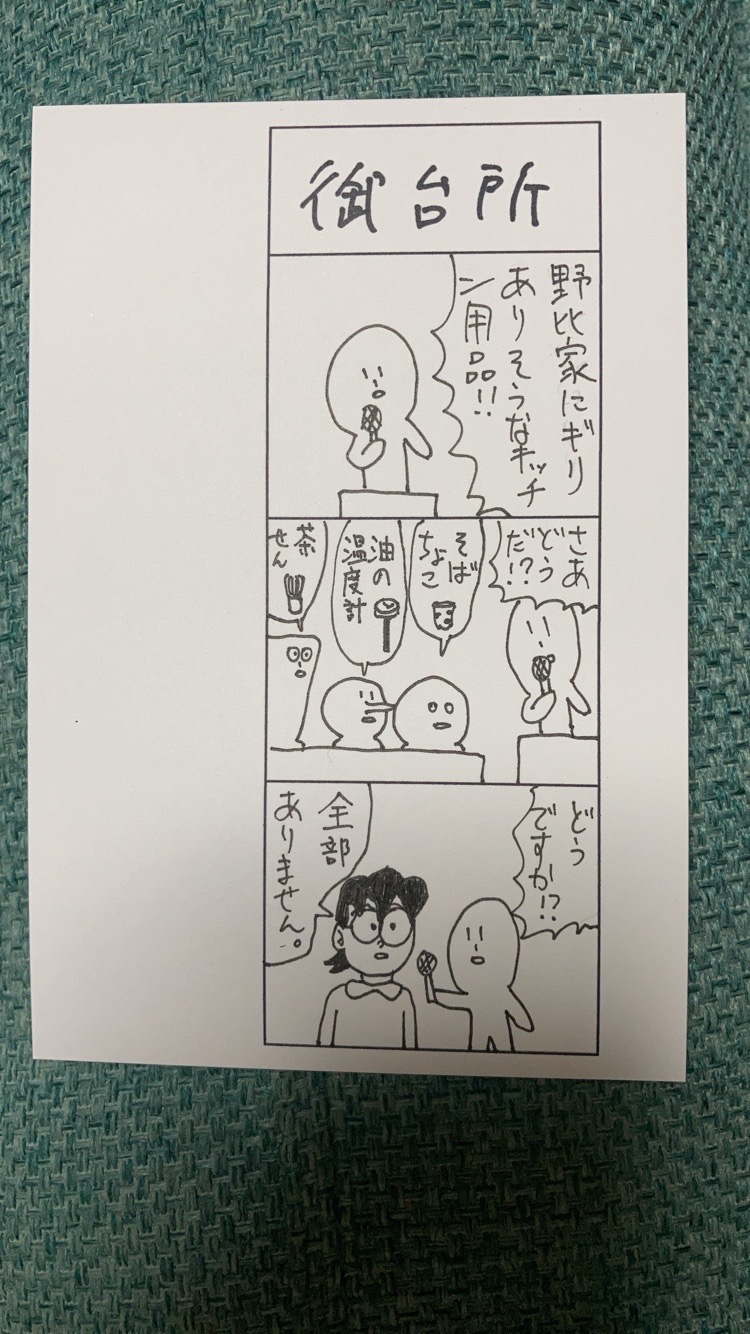 御台所
野比家にギリ
ありそうなキッチ
ン用品!!
さあ
どう
だ!?
そば
ちょこ
油の
温度計
茶
せん
どう
ですか!?
全部
ありません。